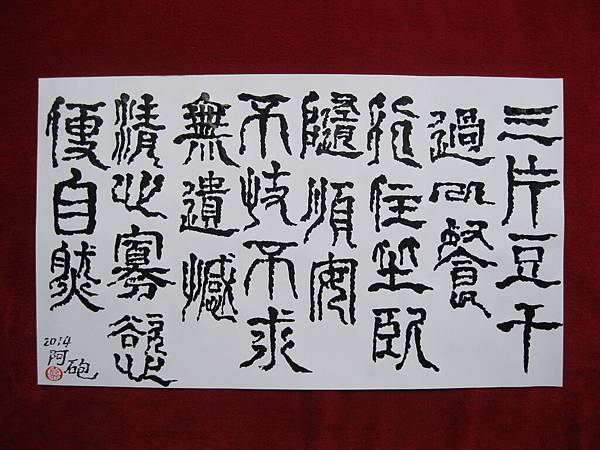 三片豆干
過以餐
行住坐臥
隨順安
不忮不求
無遺憾
清心寡慾
便自然
2014
阿砲